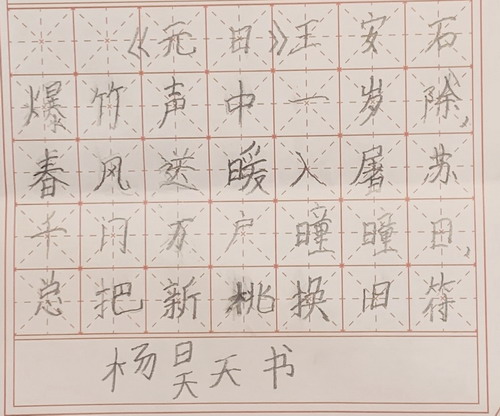 《元日》王安石
爆竹声中一岁除,
春风送暖入屠苏
千门万户瞳瞳日,
总把新桃换旧符
杨昊天书